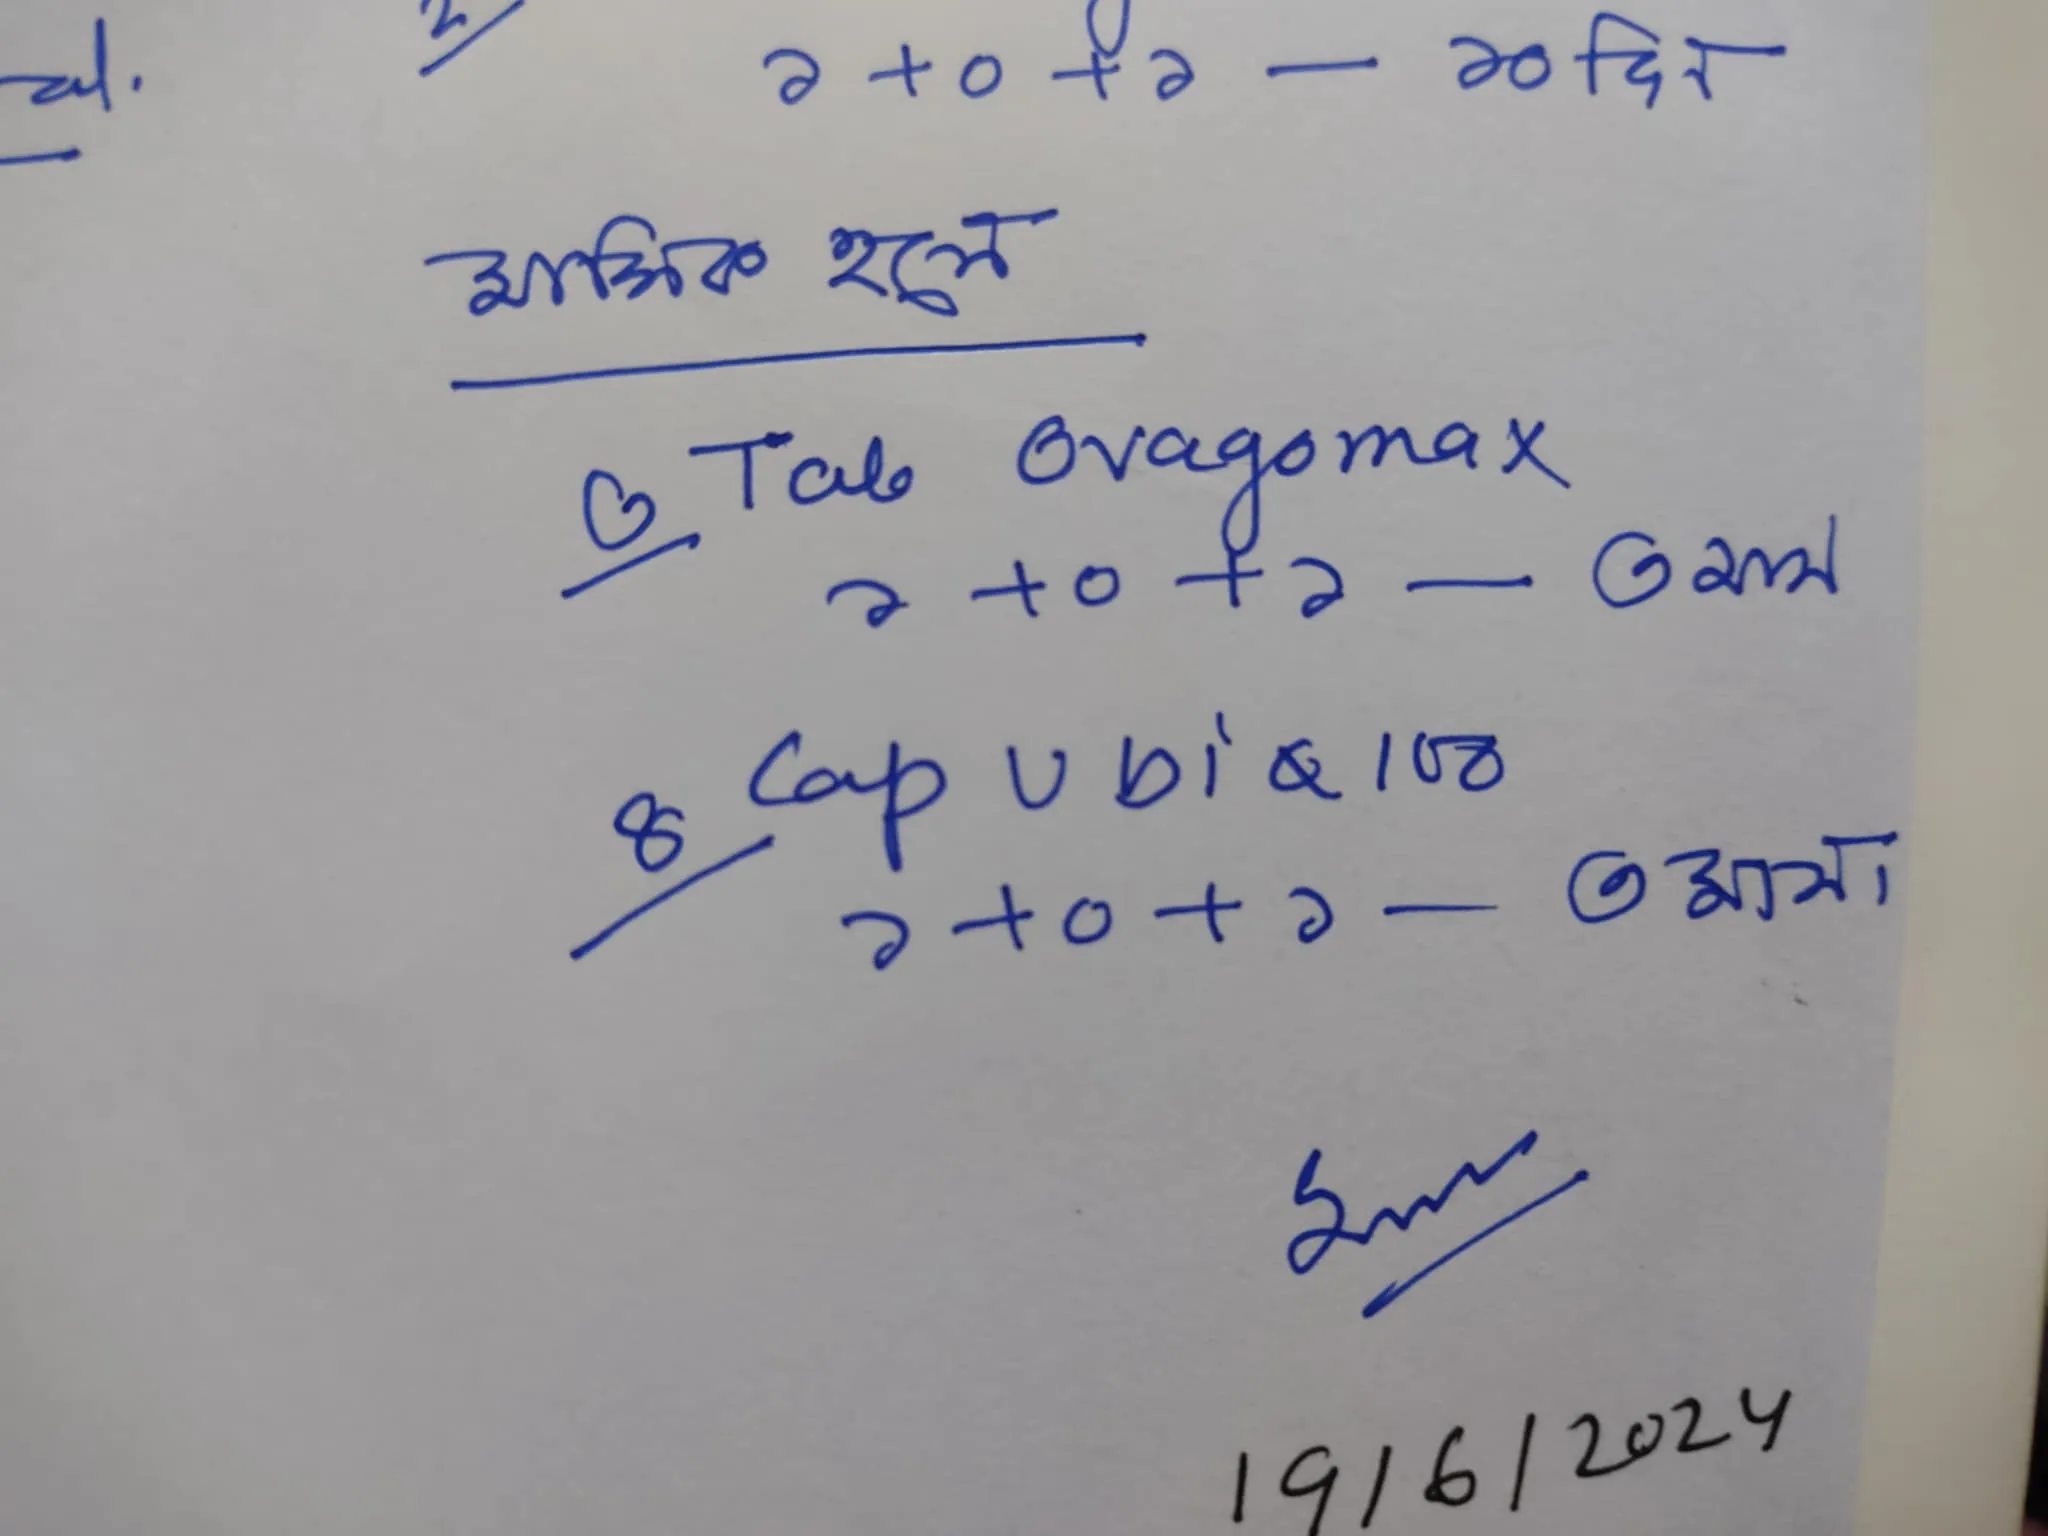 ১ + ০ + ১ — ১০ দিন
মাসিক হলে
৩ Tab Ovagomax
১ + ০ + ১ — ৩ মাস
৪ Cap Ubi Q 100
১ + ০ + ১ — ৩ মাস।
19/6/2024